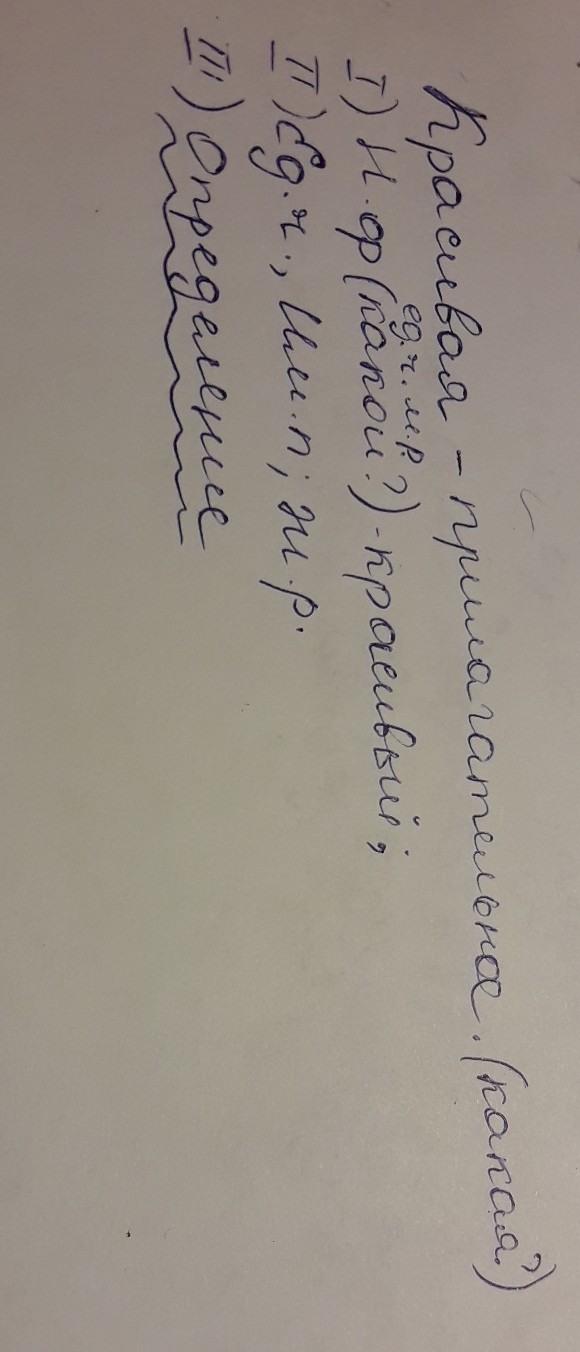 Красивая - прилагательное. (какая?)
ед.ч. м.р.
I) Н.ф (какой?) - красивый;
II) Ед.ч., Им.п; Ж.р.
III) Определение